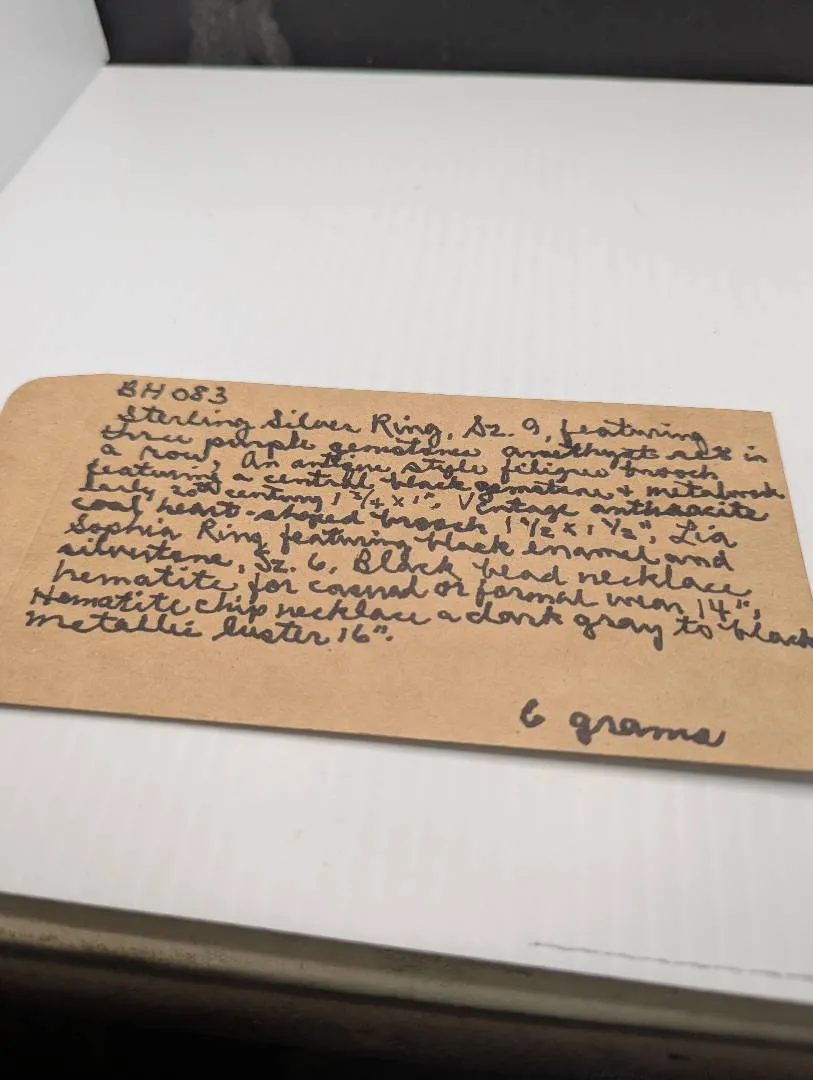 BH 083
Sterling Silver Ring, Sz. 9, featuring
three purple gemstones amethyst set in
a row, An antique style filigree brooch
featuring a central black gemstone & metalwork
Early 20th century 1 3/4 x 1", Vintage anthracite
coal heart-shaped brooch 1 1/2 x 1 1/2", Lia
Sophia Ring featuring black enamel and
silvertone, Sz. 6, Black bead necklace
hematite for casual or formal wear 14",
Hematite chip necklace a dark gray to black
metallic luster 16".
6 grams